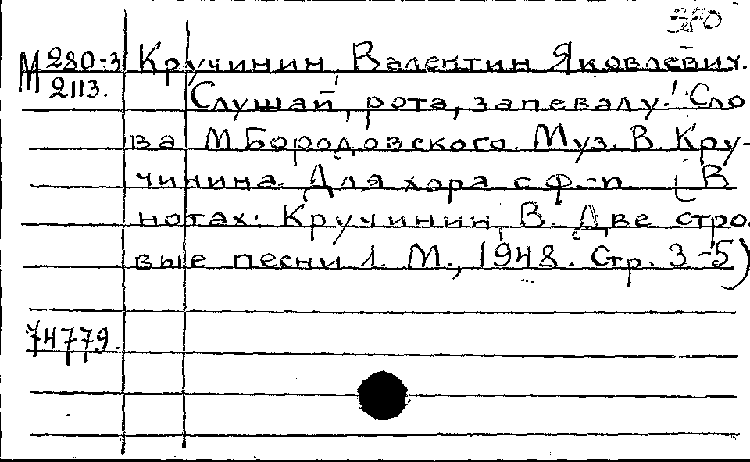 М 280-3
2113.
Кручинин, Валентин Яковлевич.
Слушай, рота, запевалу! Сло
ва М. Бородовского. Муз. В. Кру-
чинина. Для хора с ф.-п. (В
нотах: Кручинин, В. Две стро.
вые песни 1. М., 1948. Стр. 3-5)
74779.